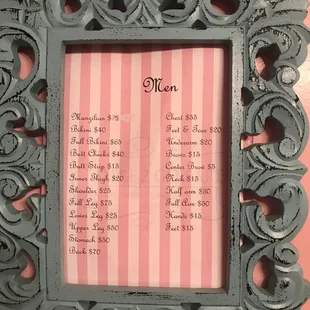 Men
Manzilian $75
Bikini $40
Full Bikini $65
Butt Cheeks $40
Butt Strip $15
Inner Thigh $20
Shoulder $25
Full Leg $75
Lower Leg $25
Upper Leg $50
Stomach $30
Back $70
Chest $55
Feet & Toes $20
Underarm $20
Brows $15
Center Brow $5
Neck $15
Half arm $30
Full Arm $50
Hands $15
Feet $15